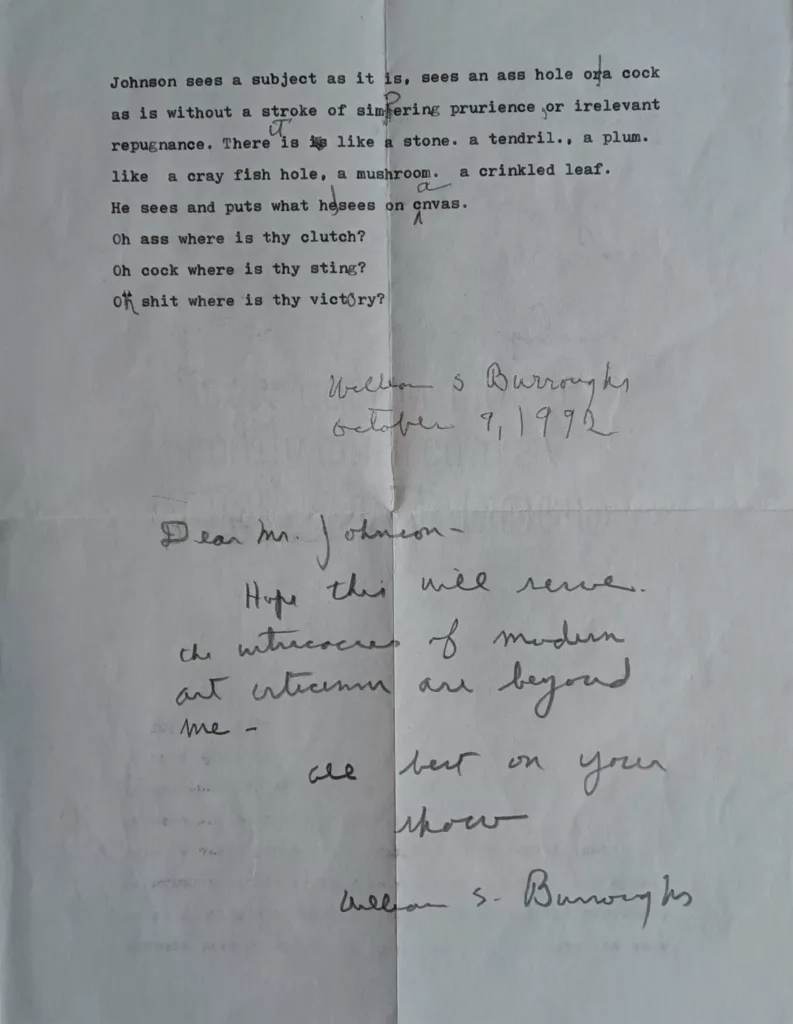 Johnson sees a subject as it is, sees an ass hole or a cock
as is without a stroke of simpering prurience, or irelevant
repugnance. There it is like a stone. a tendril., a plum.
like a cray fish hole, a mushroom. a crinkled leaf.
He sees and puts what he sees on canvas.
Oh ass where is thy clutch?
Oh cock where is thy sting?
Oh shit where is thy victory?
William S Burroughs
October 9, 1992
Dear Mr. Johnson-
Hope this will serve.
the intricacies of modern
art criticism are beyond
me -
all best on your
show
William S. Burroughs